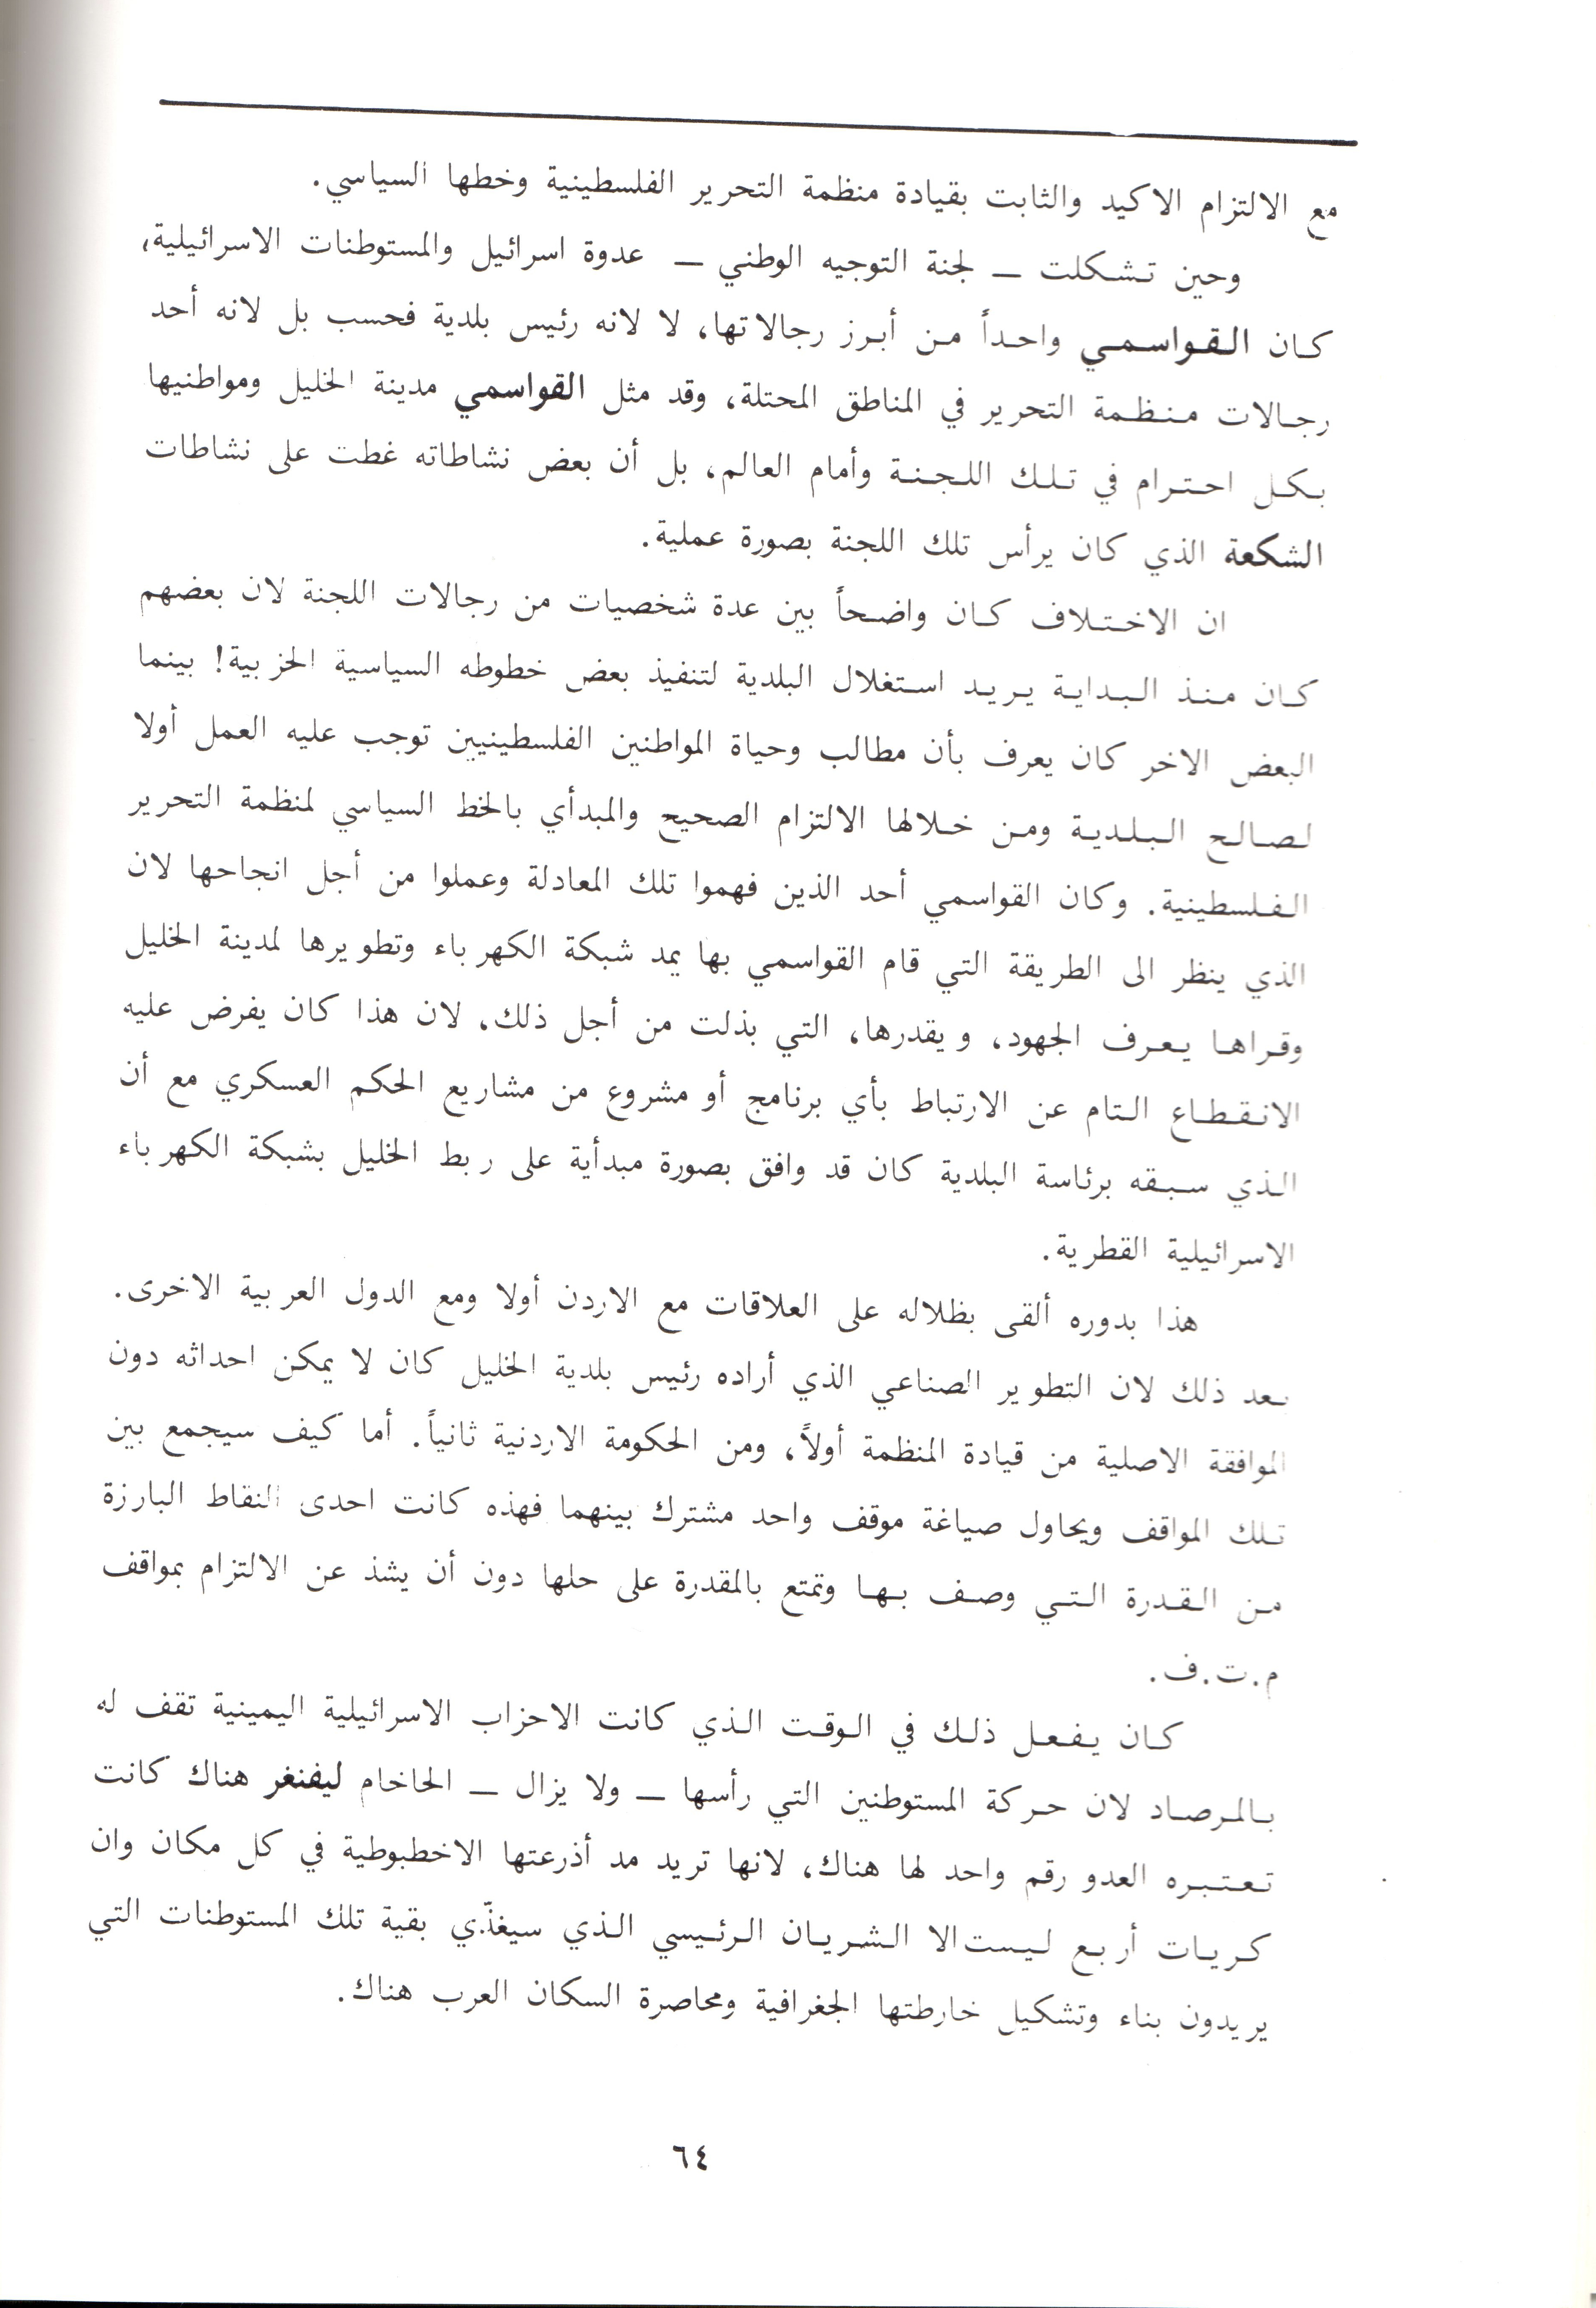 مع الالتزام الاكيد والثابت بقيادة منظمة التحرير الفلسطينية وخطها السياسي.
وحين تشكلت — لجنة التوجيه الوطني — عدوة اسرائيل والمستوطنات الاسرائيلية،
كان القواسمي واحداً من أبرز رجالاتها، لا لانه رئيس بلدية فحسب بل لانه أحد
رجالات منظمة التحرير في المناطق المحتلة، وقد مثل القواسمي مدينة الخليل ومواطنيها
بكل احترام في تلك اللجنة وأمام العالم، بل أن بعض نشاطاته غطت على نشاطات
الشكعة الذي كان يرأس تلك اللجنة بصورة عملية.
ان الاختلاف كان واضحاً بين عدة شخصيات من رجالات اللجنة لان بعضهم
كان منذ البداية يريد استغلال البلدية لتنفيذ بعض خطوطه السياسية الحزبية! بينما
البعض الاخر كان يعرف بأن مطالب وحياة المواطنين الفلسطينيين توجب عليه العمل أولا
لصالح البلدية ومن خلالها الالتزام الصحيح والمبدأي بالخط السياسي لمنظمة التحرير
الفلسطينية. وكان القواسمي أحد الذين فهموا تلك المعادلة وعملوا من أجل انجاحها لان
الذي ينظر الى الطريقة التي قام القواسمي بها يمد شبكة الكهرباء وتطويرها لمدينة الخليل
وقراها يعرف الجهود، ويقدرها، التي بذلت من أجل ذلك، لان هذا كان يفرض عليه
الانقطاع التام عن الارتباط بأي برنامج أو مشروع من مشاريع الحكم العسكري مع أن
الذي سبقه برئاسة البلدية كان قد وافق بصورة مبدأية على ربط الخليل بشبكة الكهرباء
الاسرائيلية القطرية.
هذا بدوره ألقى بظلاله على العلاقات مع الاردن أولا ومع الدول العربية الاخرى.
بعد ذلك لان التطوير الصناعي الذي أراده رئيس بلدية الخليل كان لا يمكن احداثه دون
الموافقة الاصلية من قيادة المنظمة أولاً، ومن الحكومة الاردنية ثانياً. أما كيف سيجمع بين
تلك المواقف ويحاول صياغة موقف واحد مشترك بينهما فهذه كانت احدى النقاط البارزة
من القدرة التي وصف بها وتمتع بالمقدرة على حلها دون أن يشذ عن الالتزام بمواقف
م.ت.ف.
كان يفعل ذلك في الوقت الذي كانت الاحزاب الاسرائيلية اليمينية تقف له
بالمرصاد لان حركة المستوطنين التي رأسها — ولا يزال — الحاخام ليفنغر هناك كانت
تعتبره العدو رقم واحد لها هناك، لانها تريد مد أذرعتها الاخطبوطية في كل مكان وان
كريات أربع ليست الا الشريان الرئيسي الذي سيغذّي بقية تلك المستوطنات التي
يريدون بناء وتشكيل خارطتها الجغرافية ومحاصرة السكان العرب هناك.
٦٤